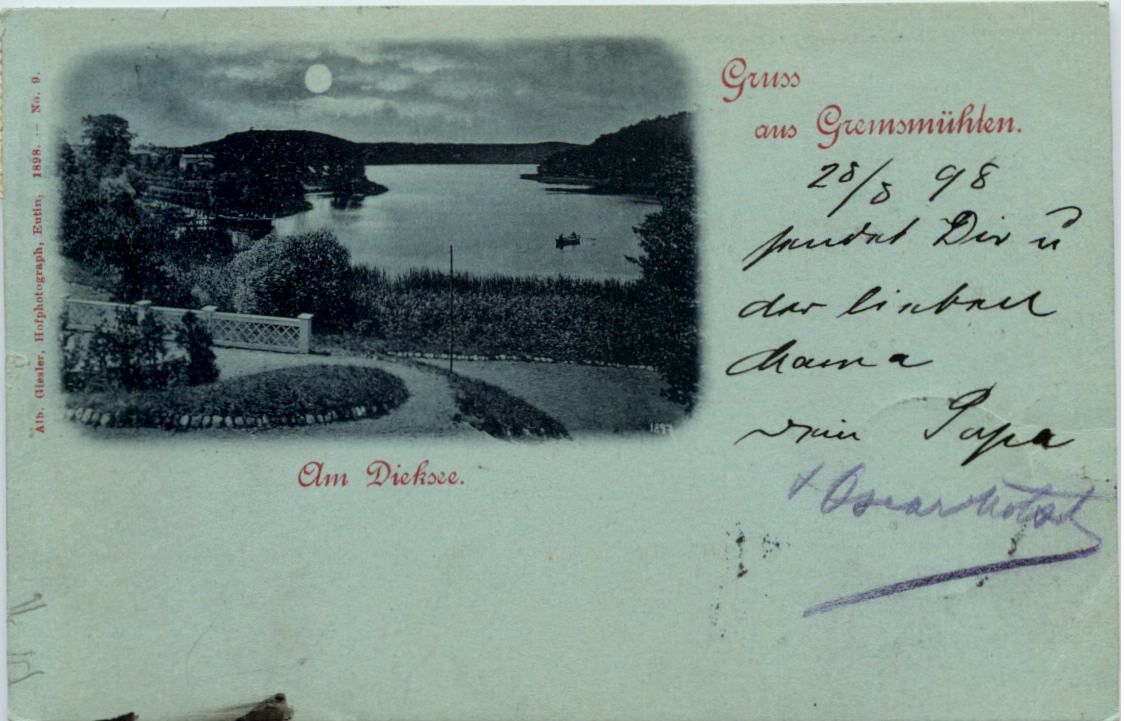 Alb. Giesler, Hofphotograph, Eutin, 1898. — No. 9.
Gruss
aus Gremsmühlen.
28/8 98
sendet Dir u
der lieben
Mama
Dein Papa
Oscar
Am Dieksee.